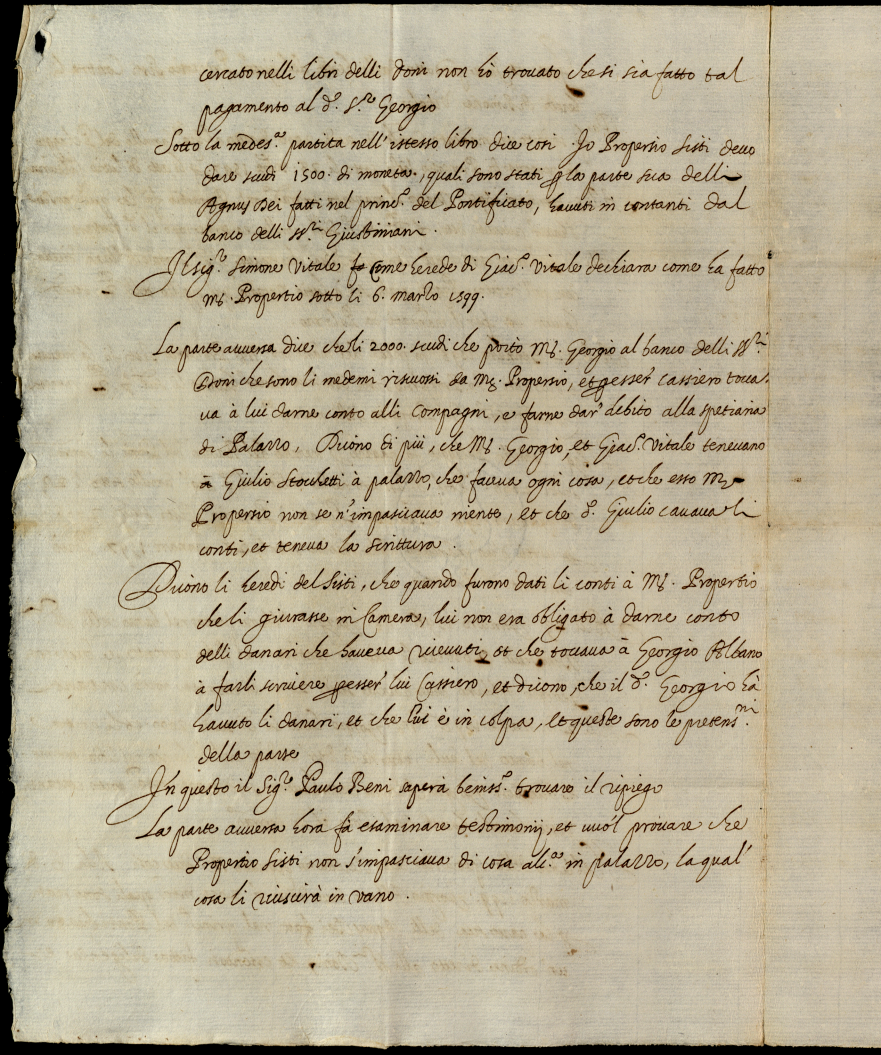 cercato nelli libri delli Doni non hò trovato che si sia fatto tal
pagamento al d.º S.re Georgio
Sotto la medes.ª partita nell'istesso libro dice così Io Propertio Sisti devo
dare scudi 1500. di moneta, quali sono stati p la parte sua delli
Agnus Dei fatti nel princ.º del Pontificato, havuti in contanti dal
banco delli SS.ri Giustiniani.
Il sig.re Simone Vitale come herede di Giac.º Vitale dechiara come ha fatto
Mº. Propertio sotto li 6. marzo 1599.
La parte avversa dice che li 2000. scudi che portò Mº. Georgio al banco delli SS.ri
Doni che sono li medemi riscuossi da Mº. Propertio, et p esser cassiero tocca-
va à lui darne conto alli Compagni, e farne dar' debito alla spetiaria
di Palazzo, Dicono di più, che Mº. Georgio, et Giac.º Vitale tenevano
à Giulio Stocchetti à palazzo, che faceva ogni cosa, et che esso Mº
Propertio non se n'impasciava niente, et che d.º Giulio cavava li
conti, et teneva la scrittura.
Dicono li heredi del Sisti, che quando furono dati li conti à Mº. Propertio
che li giurasse in Camera, lui non era obligato à darne conto
delli danari che haveva ricevuti, et che toccava à Georgio Albano
à farli scrivere p esser' lui Cassiero, et dicono, che il d.º Georgio hà
havuto li danari, et che lui è in colpa, et queste sono le pretens.ni
della parte
In questo il Sig.re Paulo Beni saperà beniss.º trovare il ripiego
La parte avversa hora fà esaminare testimonij, et vuol provare che
Propertio Sisti non s'impasciava di cosa alc.ª in palazzo, la qual'
cosa li riuscirà in vano.